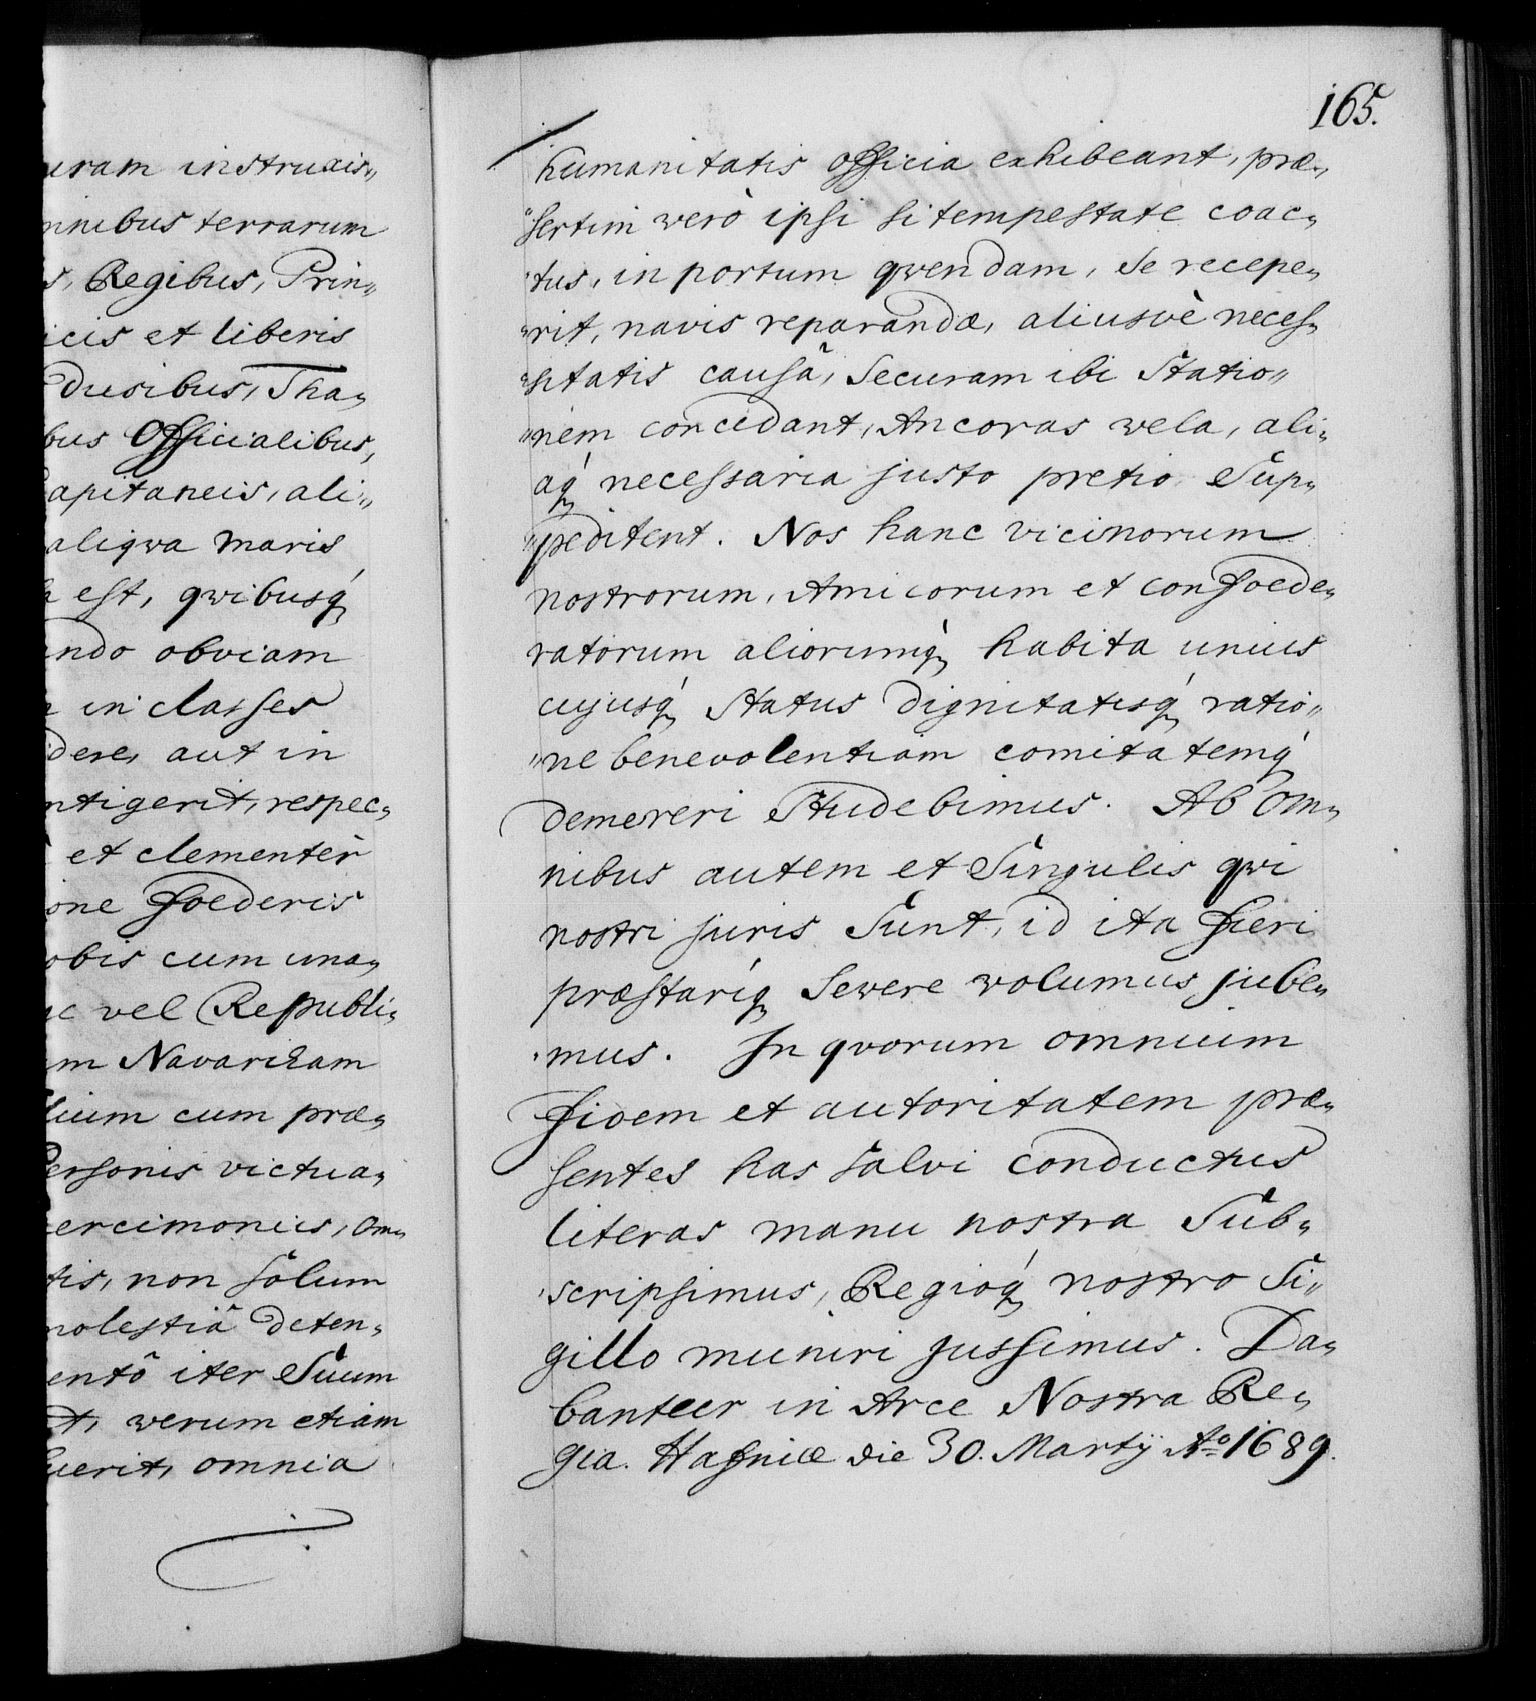 uram instruxis„
nibus terrarum
s, Regibus, Prin„
icis et liberis
Ducibus, Tha„
bus Officialibus,
apitaneis, ali„
aliqva maris
est, qvibusq́
ando obviam
in classes
dere, aut in
ntigerit, respec„
et clementèr
one foederis
obis cum una„
vel Republi„
m Navarcham
ium cum præ„
ersonis victua„
ercimoniis, om„
tis, non solum
molestiâ deten„
entô iter suum
t, verum etiam
uerit, omnia
165.
humanitatis officia exhibeant, præ„
„sertim verò ipsi si tempestate coac„
„tus, in portum qvendam, se recepe„
„rit, navis reparandæ, aliusvè neces„
„sitatis causâ, securam ibi statio„
„nem concedant, Ancoras vela, ali„
aq́ necessaria justo pretio sup„
„peditent. Nos hanc vicinorum
nostrorum, Amicorum et confoede„
ratorum aliorumq́ habita unius
cujusq́ status dignitatisq́ ratio„
„ne benevolentiam comitatemq́
demereri studebimus. Ab om„
nibus autem et singulis qvi
nostri juris sunt, id ita fieri
præstariq́ severe volumus jube„
„mus. In qvorum omnium
fidem et autoritatem præ„
sentes has salvi conductus
literas manu nostra sub„
„scripsimus, Regioq́ nostro si„
gillo muniri jussimus. Da„
bantur in Arce Nostra Re„
gia. Hafniæ die 30. Martij Aº 1689.